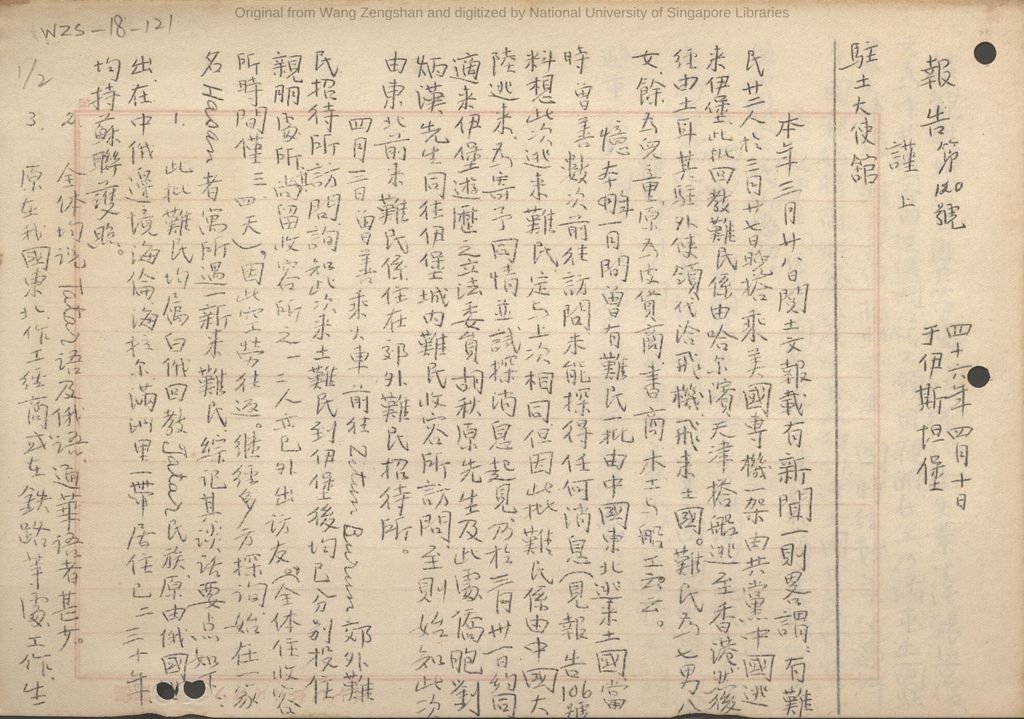 Original from Wang Zengshan and digitized by National University of Singapore Libraries
WZS-18-121
1/2
報告第120號
四十六年四月十日
于伊斯坦堡
謹上
駐土大使館
本年三月廿八日閱土文報載有新聞一則畧謂:有難
民廿二人於三月廿七日晚搭乘美國專機一架由共黨中國逃
來伊堡,此批回教難民係由哈尔濱、天津搭船逃至香港,然後
經由土耳其駐外使領代洽飛機,飛來土國。難民為七男八
女,餘為兒童,原為皮貨商、書商、木工与船工云云。
憶本年一月間曾有難民一批由中國東北逃來土國當
時曾善數次前往訪問未能探得任何消息(見報告106號
料想此次逃來難民定与上次相同但因此批難民係由中國大
陸逃來,為寄予同情並試探消息起見乃於三月卅一日約同
適來伊堡遊歷之立法委員胡秋原先生及此處僑胞劉
炳漢先生同往伊堡城内難民收容所訪問至則始知此次
由東北前來難民係住在郊外難民招待所。
四月三日曾善乘火車前往 Zitin Burun 郊外難
民招待所訪問,詢知此次來土難民到伊堡後均已分别投往
親朋處所,尚留收容所之一二人亦已外出訪友(全体住收容
所時間僅三四天)。因此空勞往返。繼經多方探詢始在一家
名 Hasan 者寓所遇一新來難民,綜記其談話要点如下:
1. 此批難民均屬白俄回教 Tatar 民族,原由俄國
出,在中俄邊境海倫海拉尔滿洲里一帶居住已二三十年
均持蘇聯護照。
2. 全体均说 Tatar 語及俄語,通華語者甚少。
3. 原在我國東北作工經商或在鉄路等處工作,生